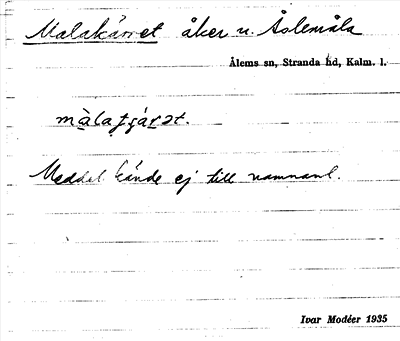 Malakärret åker u. Åslemåla
Ålems sn, Stranda hd, Kalm. l.
màlaʈʂárət.
Meddel. kände ej till namnanl.
Ivar Modéer 1935